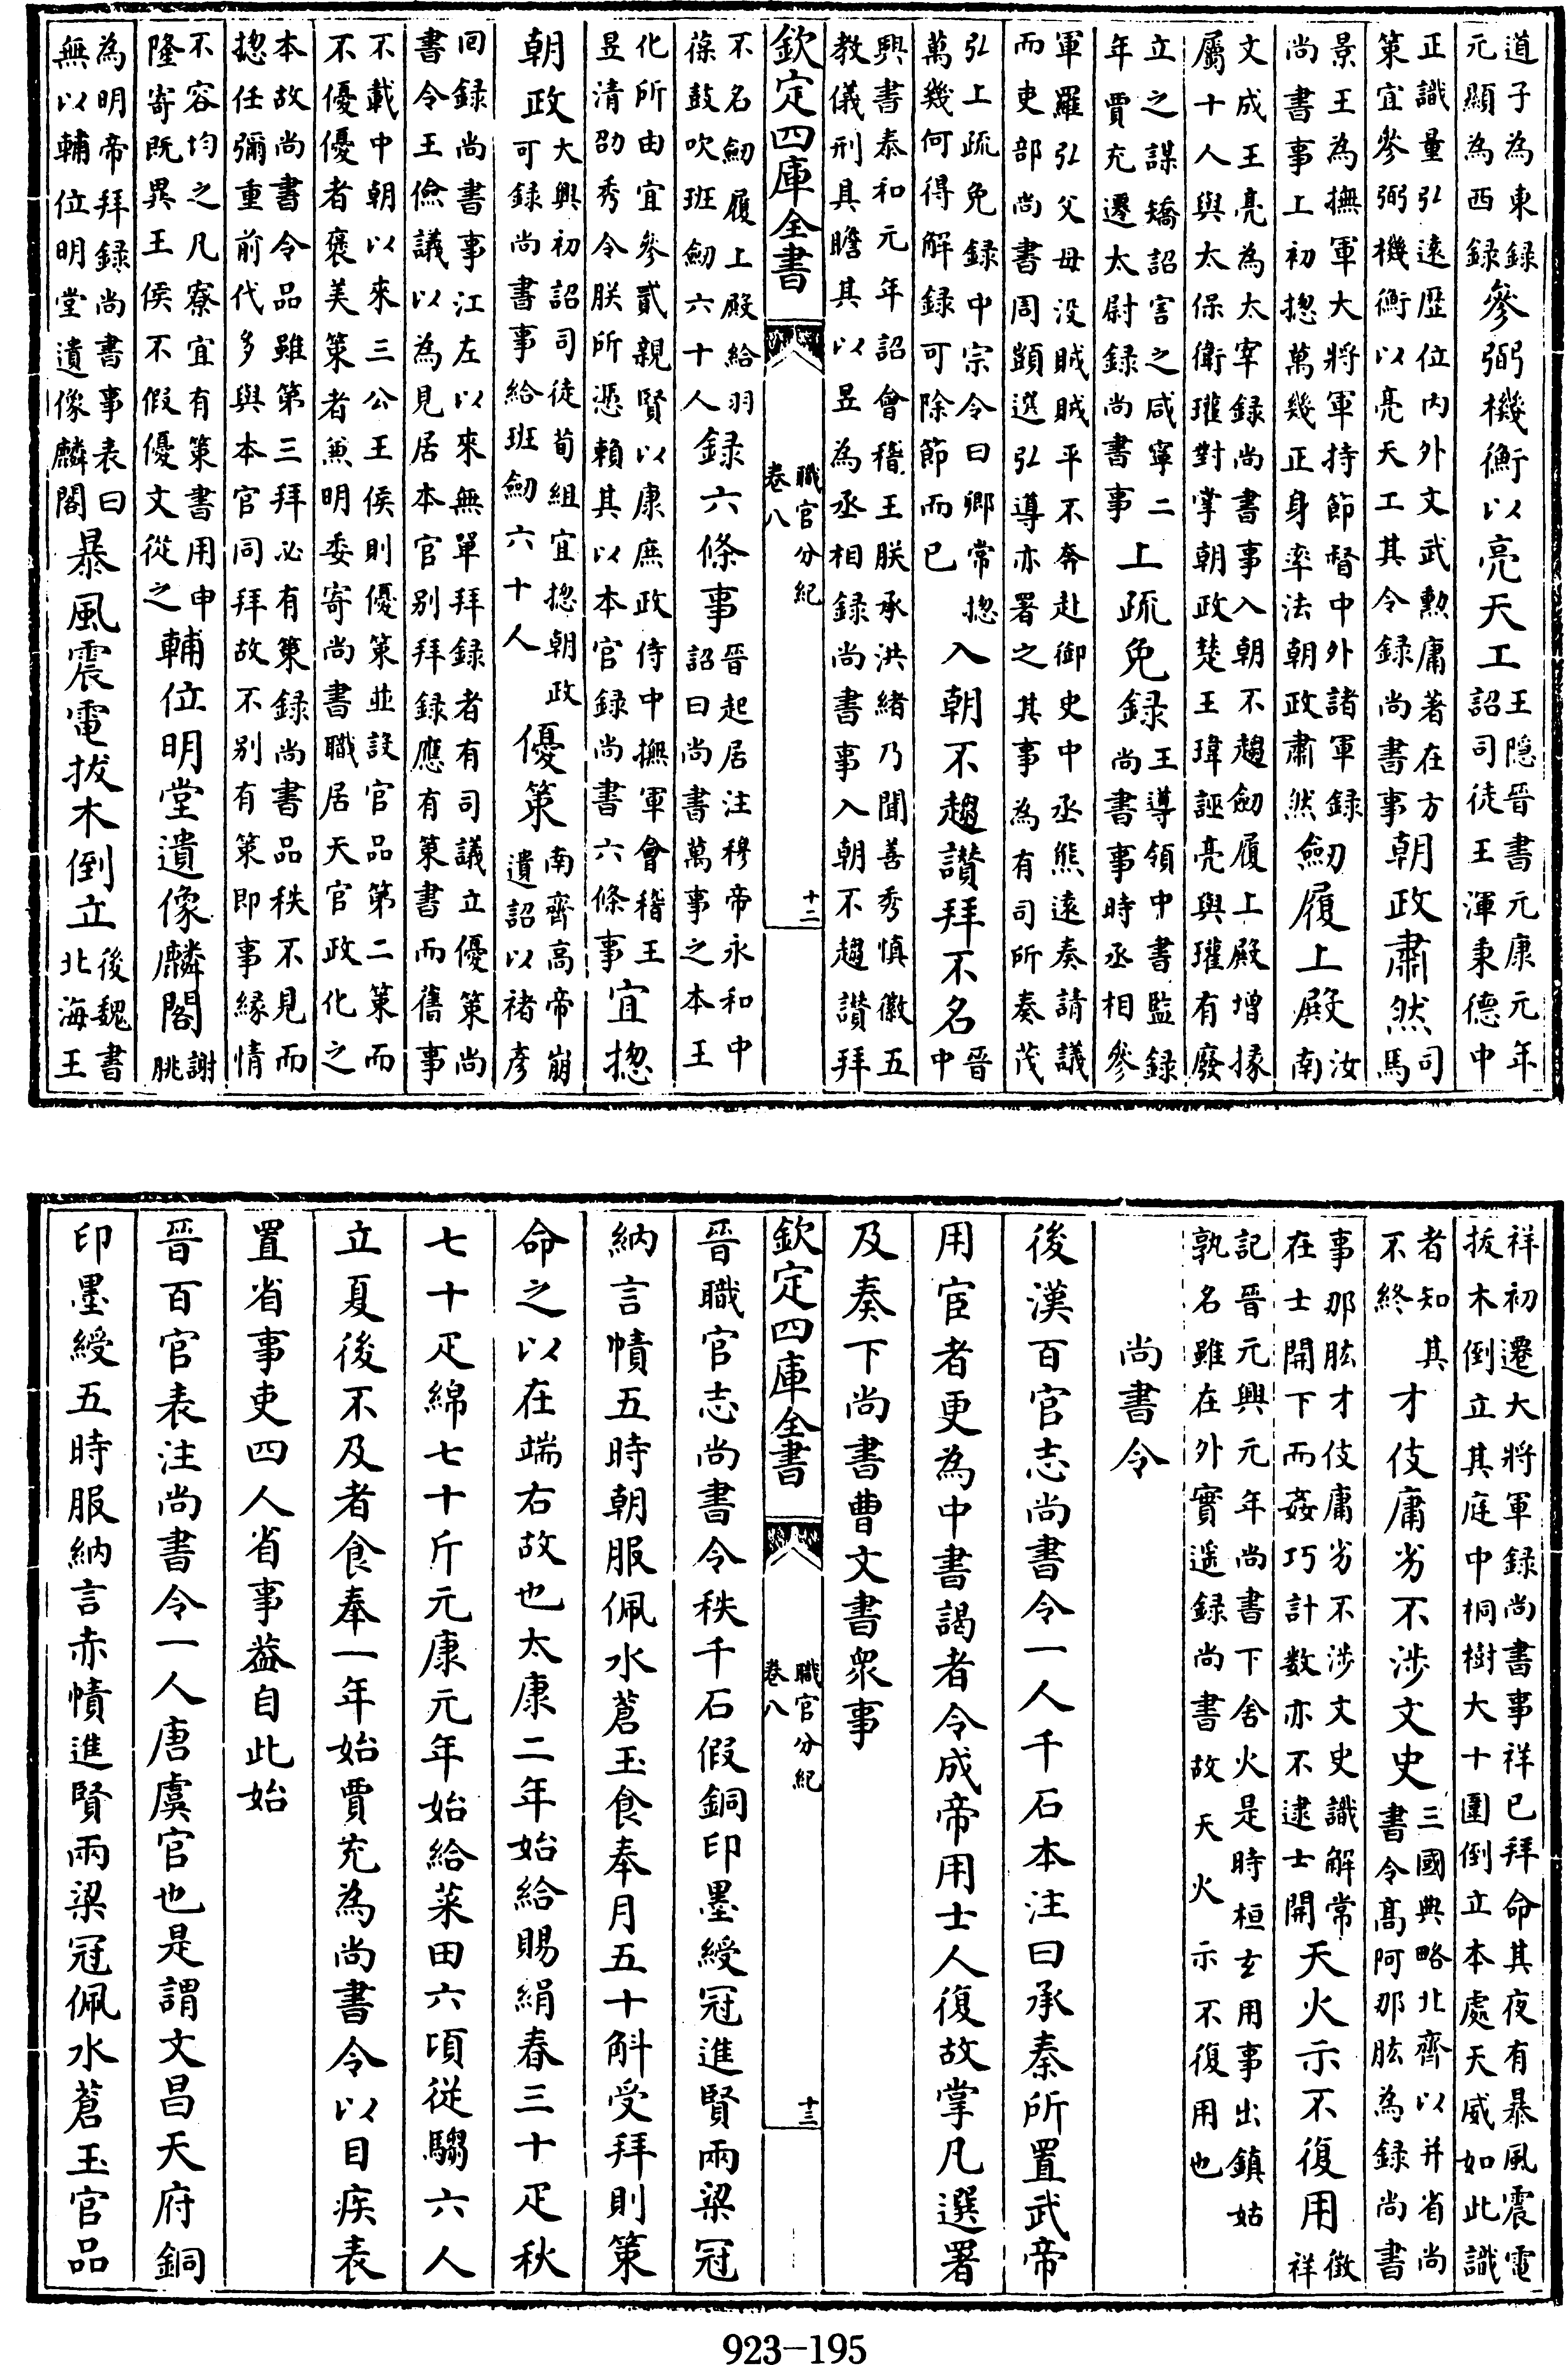 道子為東録元顯為西録參弼機衡以亮天工王隱晉書元康元年詔司徒王渾秉德中
正識量弘遠歴位内外文武勲庸著在方策宜參弼機衡以亮天工其令録尚書事朝政肅然司馬
景王為撫軍大將軍持節督中外諸軍録尚書事上初揔萬幾正身率法朝政肅然劒履上殿汝南
文成王亮為太宰録尚書事入朝不趨劒履上殿增掾屬十人與太保衛瓘對掌朝政楚王瑋誣亮與瓘有廢
立之謀矯詔害之咸寧二年賈充遷太尉録尚書事上疏免録王導領中書監録尚書事時丞相參
軍羅弘父母没賊賊平不奔赴御史中丞熊遠奏請議而吏部尚書周顗選弘導亦署之其事為有司所奏茂
弘上疏免録中宗令曰卿常揔萬幾何得解録可除節而已入朝不趨讃拜不名晉中
興書泰和元年詔會稽王朕承洪緒乃聞善秀慎徽五教儀刑具瞻其以昱為丞相録尚書事入朝不趨讃拜
欽定四庫全書 職官分紀卷八 十二
不名劒履上殿給羽葆鼓吹班劒六十人録六條事晉起居注穆帝永和中詔曰尚書萬事之本王
化所由宜參貳親賢以康庶政侍中撫軍會稽王昱清劭秀令朕所憑賴其以本官録尚書六條事宜揔
朝政大興初詔司徒荀組宜揔朝政可録尚書事給班劒六十人優策南齊高帝崩遺詔以褚彦
回録尚書事江左以來無單拜録者有司議立優策尚書令王儉議以為見居本官别拜録應有策書而舊事
不載中朝以來三公王侯則優策並設官品第二策而不優優者褒美策者兼明委寄尚書職居天官政化之
本故尚書令品雖第三拜必有策録尚書品秩不見而揔任彌重前代多與本官同拜故不别有策即事緣情
不容均之凡寮宜有策書用申隆寄既異王侯不假優文從之輔位明堂遺像麟閣謝朓
為明帝拜録尚書事表曰無以輔位明堂遺像麟閣暴風震電拔木倒立後魏書北海王
祥初遷大將軍録尚書事祥已拜命其夜有暴風震電拔木倒立其庭中桐樹大十圍倒立本處天威如此識
者知其不終才伎庸劣不涉文史三國典略北齊以并省尚書令高阿那肱為録尚書
事那肱才伎庸劣不涉文史識解常在士開下而姦巧計數亦不逮士開天火示不復用徴祥
記晉元興元年尚書下舍火是時桓玄用事出鎮姑孰名雖在外實遥録尚書故天火示不復用也
尚書令
後漢百官志尚書令一人千石本注曰承秦所置武帝
用宦者更為中書謁者令成帝用士人復故掌凡選署
及奏下尚書曹文書衆事
欽定四庫全書 職官分紀卷八 十三
晉職官志尚書令秩千石假銅印墨綬冠進賢兩梁冠
納言幘五時朝服佩水蒼玉食奉月五十斛受拜則策
命之以在端右故也太康二年始給賜絹春三十疋秋
七十疋綿七十斤元康元年始給菜田六頃從騶六人
立夏後不及者食奉一年始賈充為尚書令以目疾表
置省事吏四人省事葢自此始
晉百官表注尚書令一人唐虞官也是謂文昌天府銅
印墨綬五時服納言赤幘進賢兩梁冠佩水蒼玉官品
923-195